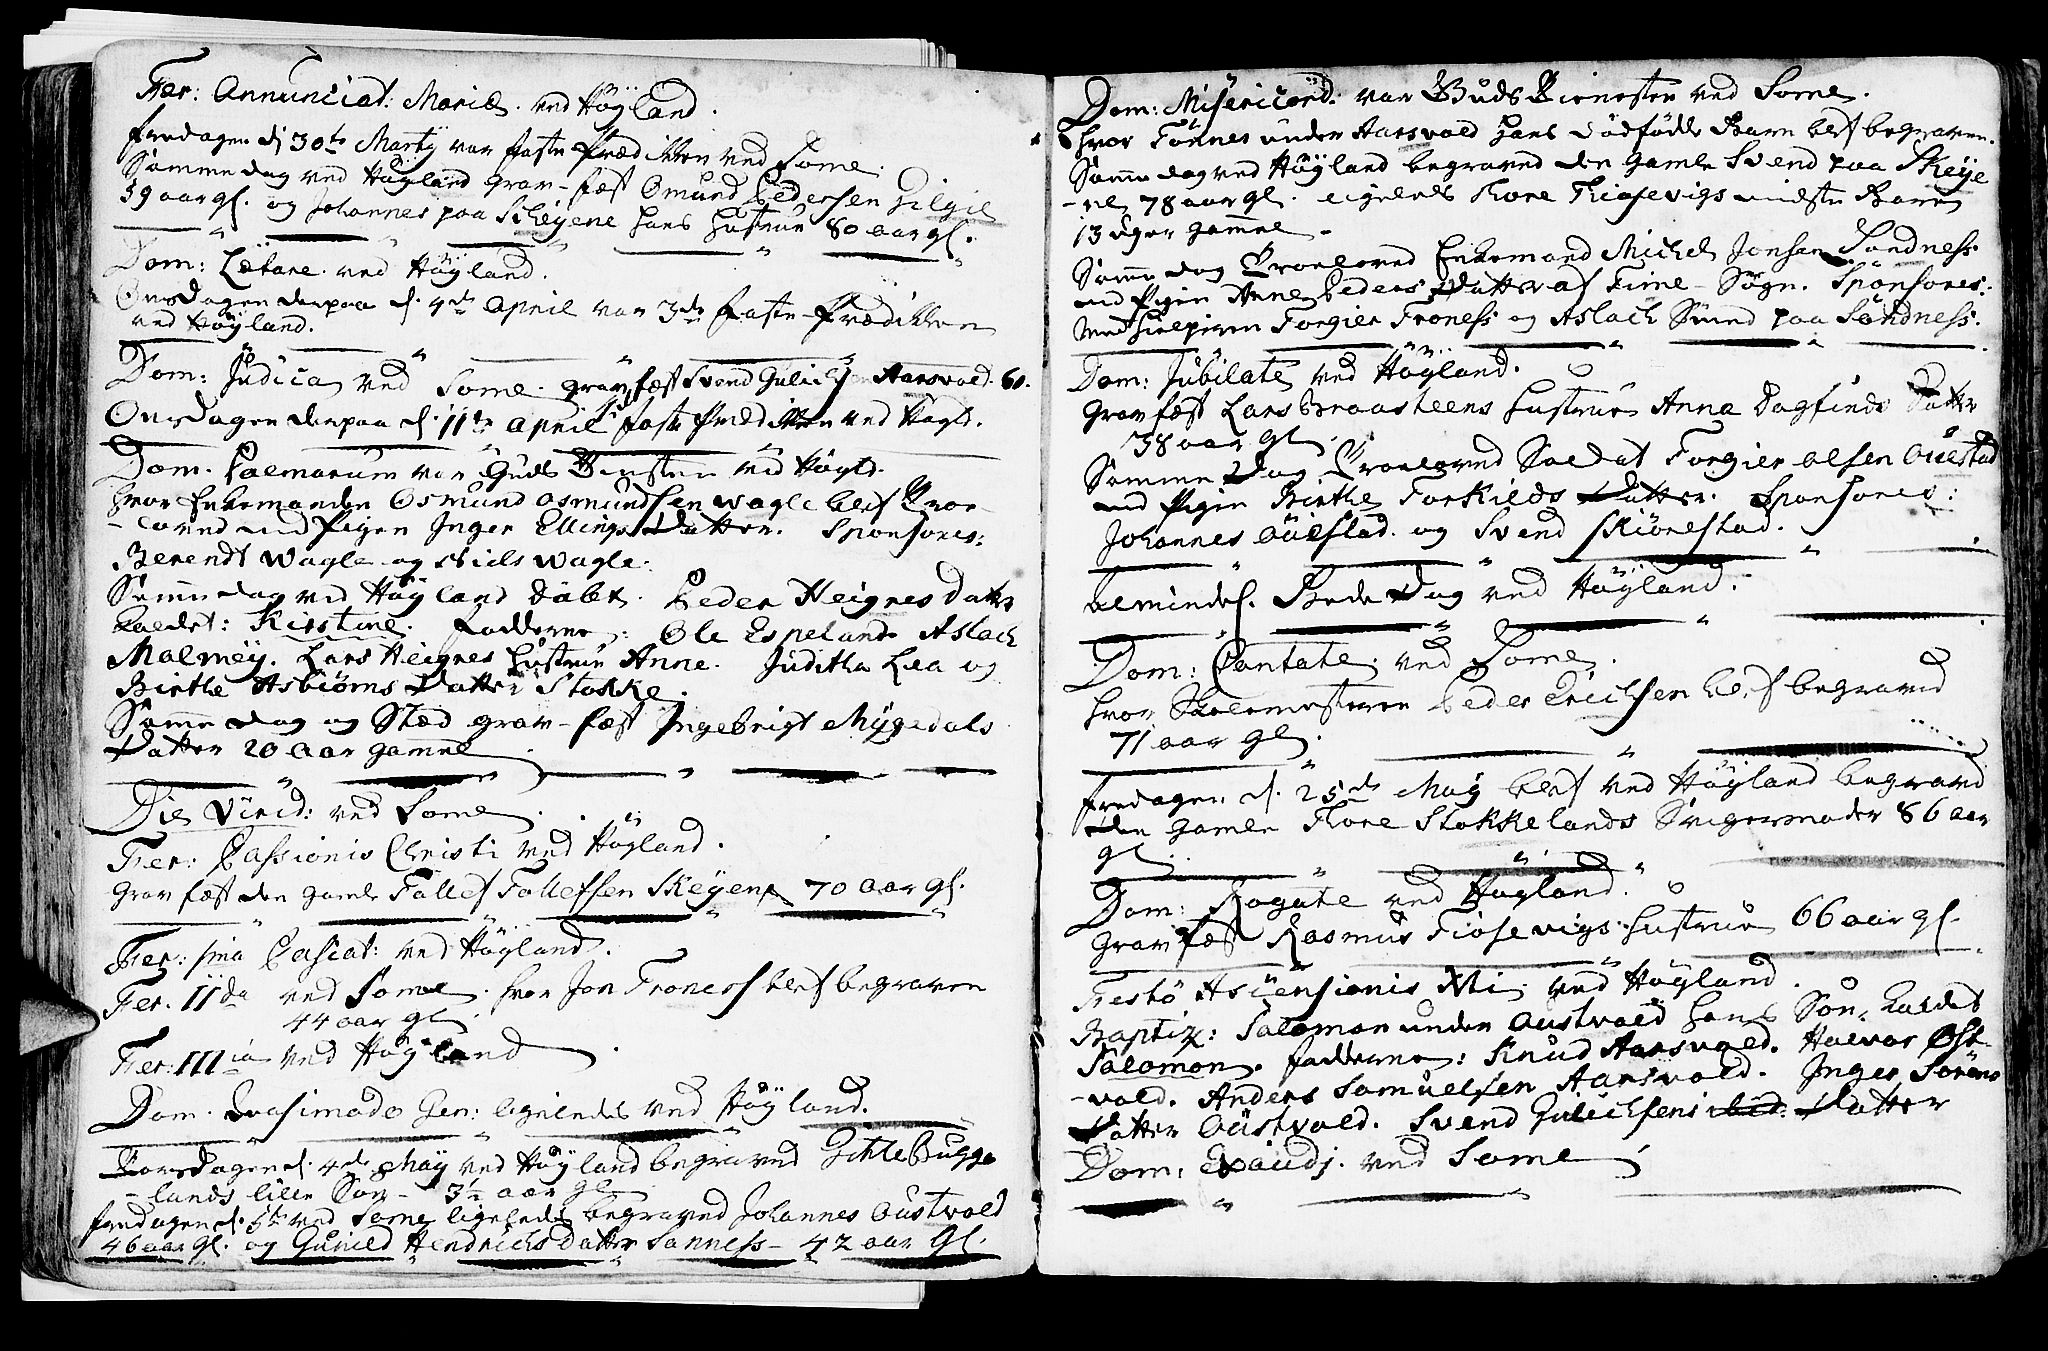 Fer: Annunciat: Mariæ. ved Høyland.
fredagen d. 30te Martÿ var faste Prædiken ved Some.
Samme dag ved Høyland grav-fæst Omund Pedersen
39 aar gl. og Johannes paa Scheyene hans Hustrue 80 aar gl.
Dom: Lætare. ved Høyland.
Onsdagen derpaa d. 4de April var 3de faste-Prædiken
ved Høyland.
Dom: Judica ved Some. gravfæst Svend Gulichs: Aarsvold. 60.
Onsdagen derpaa d. 11te April faste Prædiken ved Høyld.
Dom. Palmarum var Guds Tienesten ved Høyld.
hvor Enkemanden Osmund Osmundsen Wagle blef Troe-
-lovet med Pigen Inger Ellings Datter. Sponsores:
Berendt Wagle og Niels Wagle.
Samme dag ved Høyland døbt. Peder Heignes Datter
kaldet: Kirstine. fadderne: Ole Espeland Aslach
Malmey. Lars Heignes Hustrue Anne. Juditha Lea og
Birthe Asbiørns Datter Stokke.
Samme dag og Stæd grav-fæst Ingebrigt Mÿgedals
Datter 20 aar gamel.
Die Virid: ved Some.
Fer: Passionis Christi ved Høyland.
Grav fæst den gamle Tollef Tollefsen Skeyene 70 aar gl.
Fer: pma Pascat: ved Høyland.
Fer. IIda ved Some. hvor Jon Troness blef begraven
44 aar gl.
Fer: IIIia ved Høyland.
Dom. Qvasimodo Gen: ligeledes ved Høyland.
Torsdagen d. 4de May ved Høyland begraved Gitle Bugge-
-lands lille Søn - 3½ aar gl.
fredagen d. 5te ved Some ligeledes begraved Johannes Austvold
46 aar gl. og Guriled Hendrichs Datter Sanness - 42 aar Gl.
Dom: Misericord: var Guds Tienesten ved Some.
hvor Tønnes under Aarsvold hans dødfødde Barn blef begraven.
Samme dag ved Høyland begraved den gamle Svend paa Skeye
-ne 78 aar gl. ligeleds Tore Fiosevigs mindste Barn
13 uger gamel.
Samme dag Troeloved Enkemand Michel Jonsen Sandness
med Pigen Anne Peders Datter af Time - Sogn. Sponsores:
Torgier Froness og Aslach Svend paa Sandness.
Dom: Jubilate ved Høyland.
Grav fæst Lars Braasteens Hustrue Anna Dagfinds Datter
38 aar gl.
Samme Dag Troeloved Soldat Torgier Olsen Øuestad
med Pigen Birthe Torkilds Datter. Sponsores:
Johannes Øuestad. og Svend Skiørestad.
Almindel. Bede Dag ved Høyland.
Dom: Cantate. ved Some.
hvor Skolemesteren Peder Erichsen blef begraved
71 aar gl.
Fredagen d. 25de May blef ved Høyland begraved
den gamle Tore Stokkelands Svigermoder 86 aar
gl.
Dom: Rogate ved Høyland.
Grav fæst Rasmus Fiosevigs Hustrue 66 aar gl.
Festo Ascensionis Xti. ved Høyland.
Baptiz: Salomon under Austvold hans Søn, kaldet
Salomon. fadderne: Knud Aarsvold. Halvor Øst-
-vold. Anders Samuelsen Aarsvold. Inger Sørens
Datter Austvold. Svend Gulichsens ibid: Datter
Dom: Exaudj. ved Some